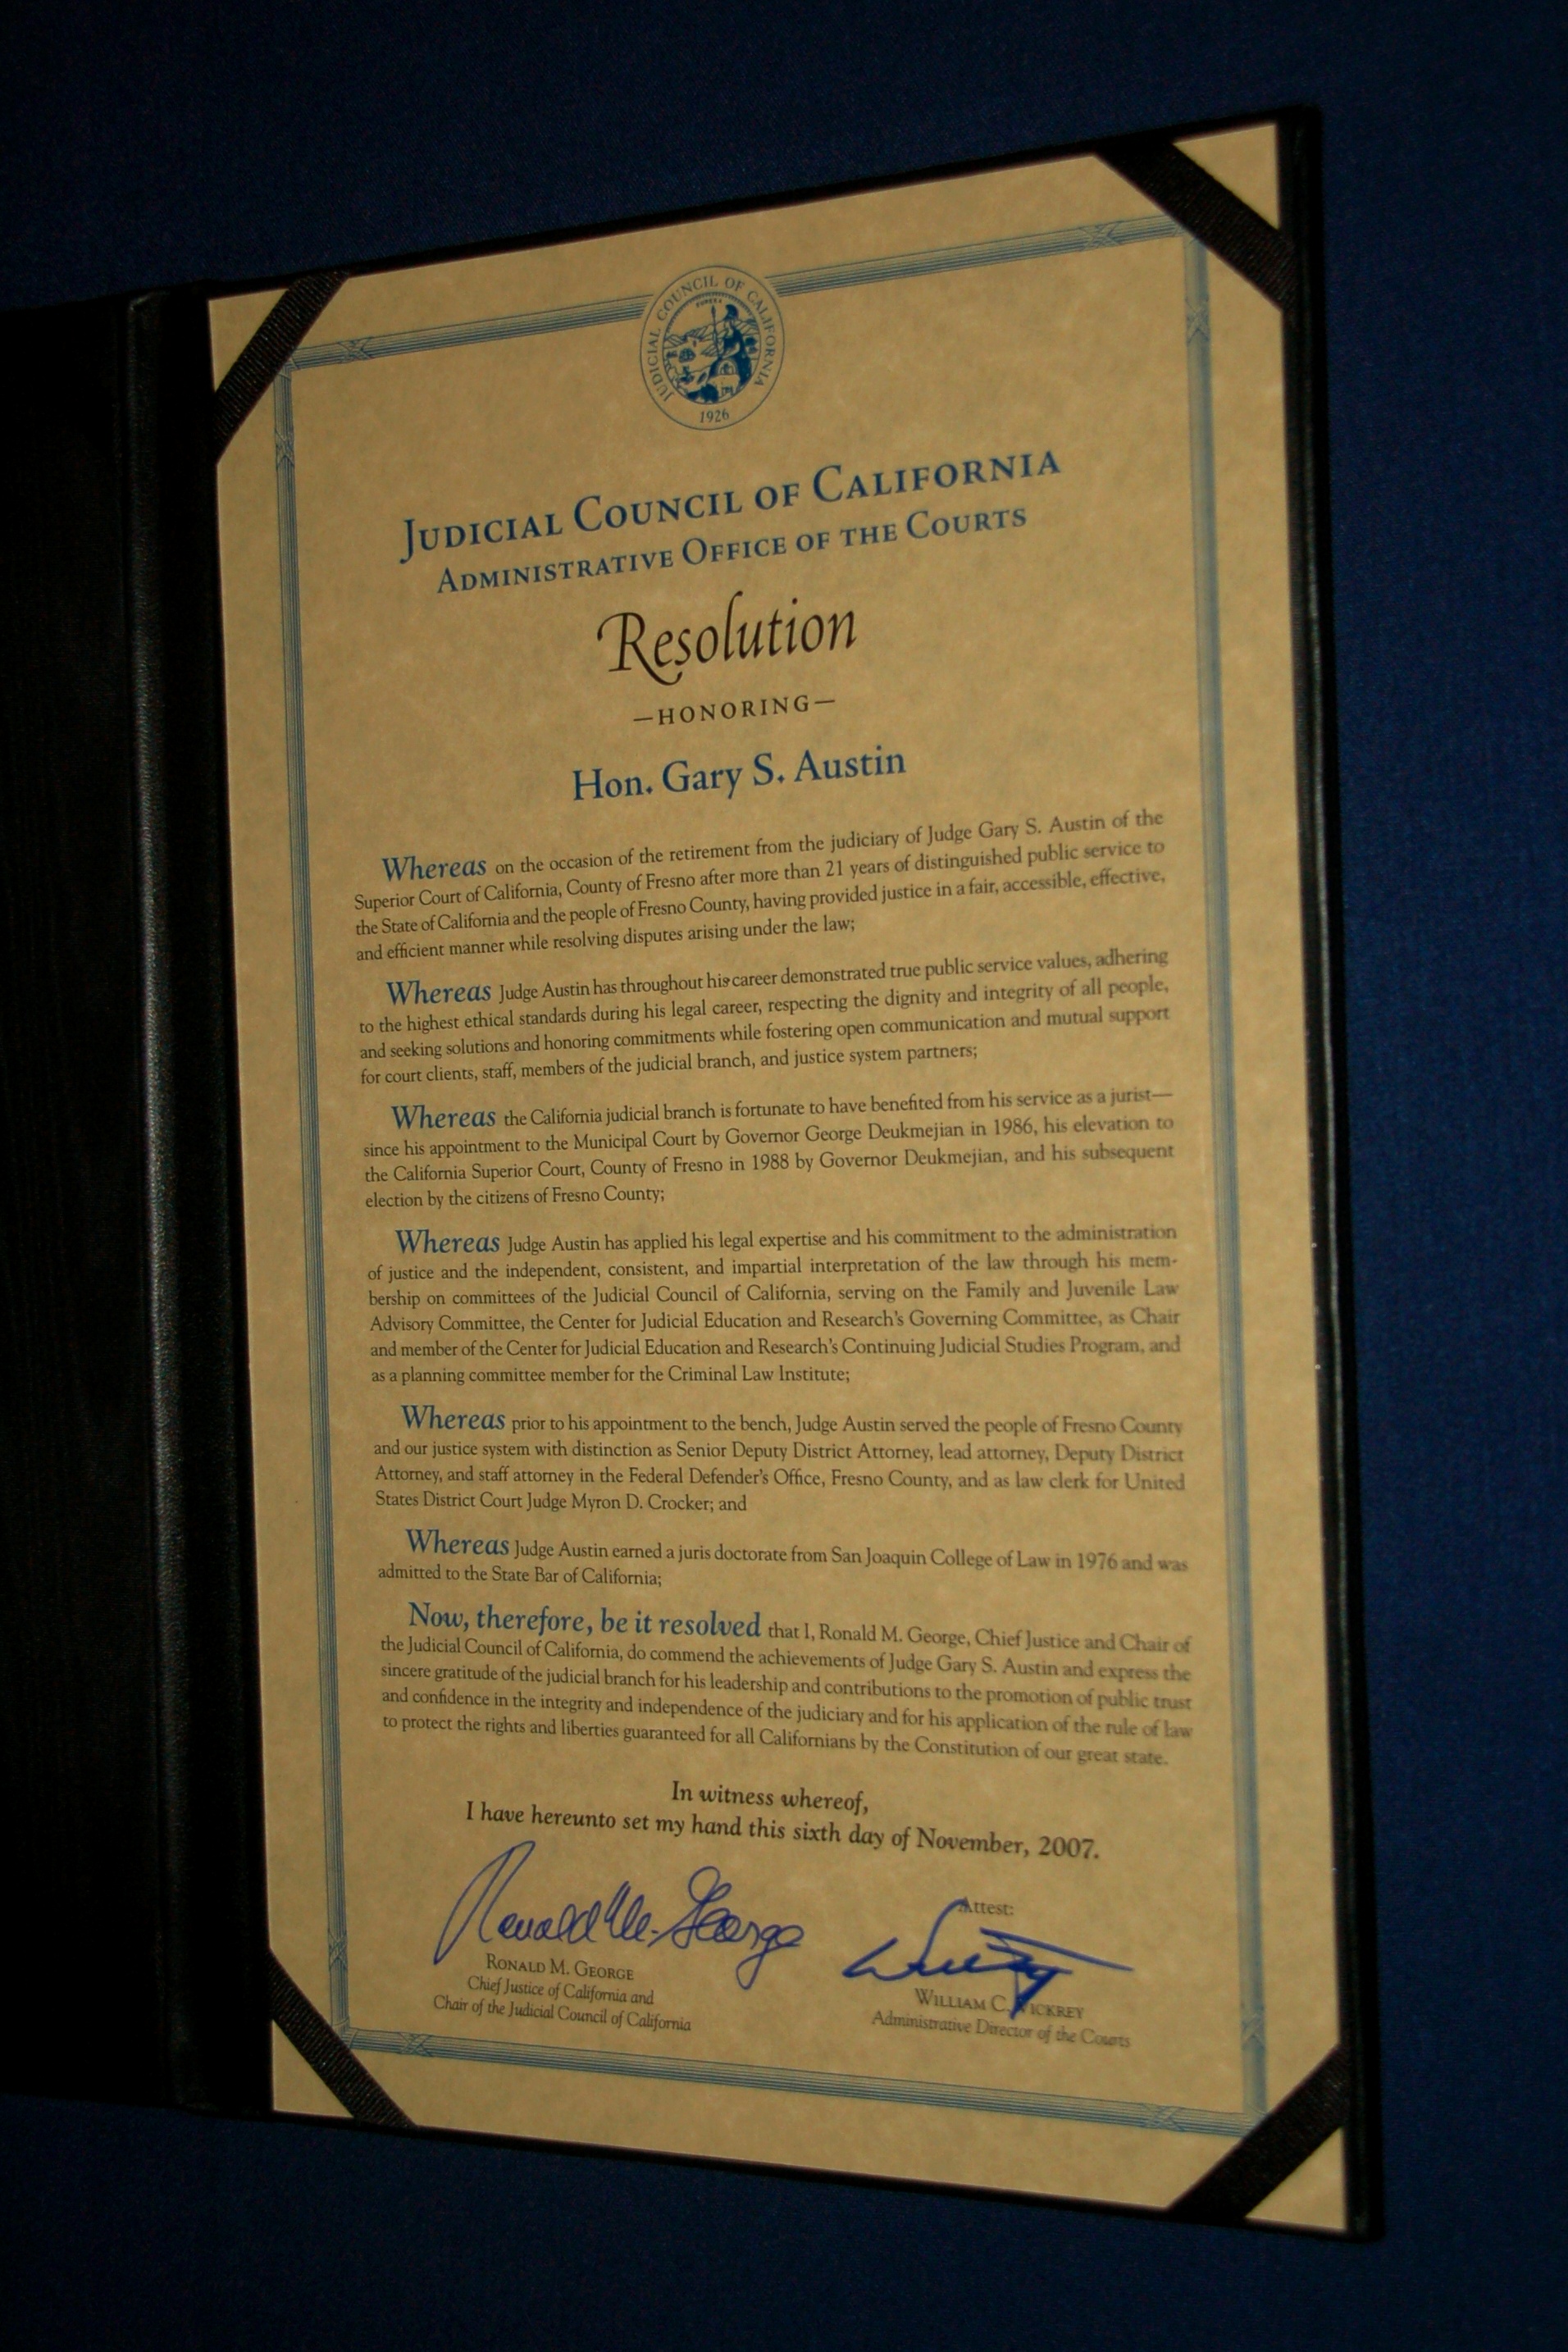 JUDICIAL COUNCIL OF CALIFORNIA
EUREKA
1926
JUDICIAL COUNCIL OF CALIFORNIA
ADMINISTRATIVE OFFICE OF THE COURTS
Resolution
—HONORING—
Hon. Gary S. Austin
Whereas on the occasion of the retirement from the judiciary of Judge Gary S. Austin of the
Superior Court of California, County of Fresno after more than 21 years of distinguished public service to
the State of California and the people of Fresno County, having provided justice in a fair, accessible, effective,
and efficient manner while resolving disputes arising under the law;
Whereas Judge Austin has throughout his career demonstrated true public service values, adhering
to the highest ethical standards during his legal career, respecting the dignity and integrity of all people,
and seeking solutions and honoring commitments while fostering open communication and mutual support
for court clients, staff, members of the judicial branch, and justice system partners;
Whereas the California judicial branch is fortunate to have benefited from his service as a jurist—
since his appointment to the Municipal Court by Governor George Deukmejian in 1986, his elevation to
the California Superior Court, County of Fresno in 1988 by Governor Deukmejian, and his subsequent
election by the citizens of Fresno County;
Whereas Judge Austin has applied his legal expertise and his commitment to the administration
of justice and the independent, consistent, and impartial interpretation of the law through his mem-
bership on committees of the Judicial Council of California, serving on the Family and Juvenile Law
Advisory Committee, the Center for Judicial Education and Research's Governing Committee, as Chair
and member of the Center for Judicial Education and Research's Continuing Judicial Studies Program, and
as a planning committee member for the Criminal Law Institute;
Whereas prior to his appointment to the bench, Judge Austin served the people of Fresno County
and our justice system with distinction as Senior Deputy District Attorney, lead attorney, Deputy District
Attorney, and staff attorney in the Federal Defender's Office, Fresno County, and as law clerk for United
States District Court Judge Myron D. Crocker; and
Whereas Judge Austin earned a juris doctorate from San Joaquin College of Law in 1976 and was
admitted to the State Bar of California;
Now, therefore, be it resolved that I, Ronald M. George, Chief Justice and Chair of
the Judicial Council of California, do commend the achievements of Judge Gary S. Austin and express the
sincere gratitude of the judicial branch for his leadership and contributions to the promotion of public trust
and confidence in the integrity and independence of the judiciary and for his application of the rule of law
to protect the rights and liberties guaranteed for all Californians by the Constitution of our great state.
In witness whereof,
I have hereunto set my hand this sixth day of November, 2007.
Ronald M. George
RONALD M. GEORGE
Chief Justice of California and
Chair of the Judicial Council of California
Attest:
WILLIAM C. VICKREY
Administrative Director of the Courts